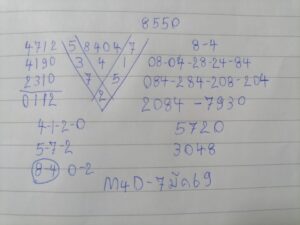 8550
4712 5 8 4 0 4 7 8-4
4190 3 4 1 08-04-28-24-84
2310 7 5 084-284-208-204
0112 2 2084-7930
4-1-2-0 5720
5-7-2 3048
8-4 0-2
M4D-7มีด69